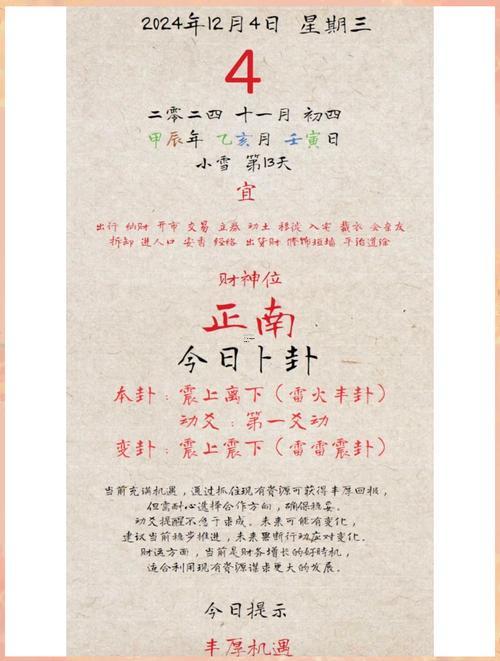 2024年12月4日 星期三
4
二零二四 十一月 初四
甲辰年 乙亥月 壬寅日
小雪 第13天
宜
出行 纳财 开市 交易 立券 动土 移徙 入宅 裁衣 会亲友
拆卸 进人口 安香 经络 出货财 修饰垣墙 平治道涂
财神位
正南
今日卜卦
本卦：震上离下（雷火丰卦）
动爻：第一爻动
变卦：震上震下（雷雷震卦）
当前充满机遇，通过抓住现有资源可获得丰厚回报，
但需耐心选择合作方向，确保稳妥。
动爻提醒不急于求成。未来可能有变化，
建议当前稳步推进，未来果断行动应对变化。
财运方面，当前是财务增长的好时机，
适合利用现有资源谋求更大的发展。
今日提示
丰厚机遇